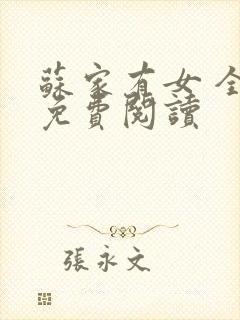 蘇家有女 全
免費閱讀
張永文